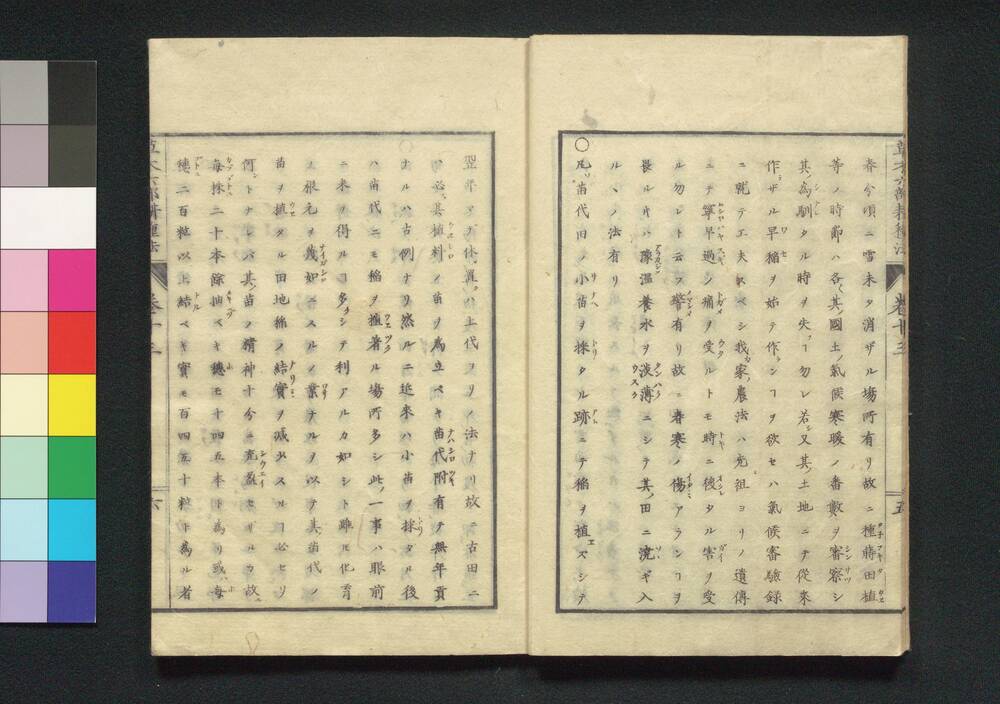 春分頃ニ雪未タ消ザル場所有リ故ニ種蒔田植
等ノ時節ハ各〻其國土ノ氣候寒暖ノ番數ヲ審察シ
其爲馴タル時ヲ失フヿ勿レ若シ又其土地ニテ從來
作ラザル早稲ヲ始テ作ランヿヲ欲セハ氣候審驗録
ニ就テ工夫スベシ我家農法ハ先祖ヨリノ遺傳
ニテ寧早過シ痛ヲ受ルトモ時ニ後タル害ヲ受
ルヿ勿レト云フ警有リ故ニ春寒ノ傷アランヿヲ
畏ルヽ片ハ蔭温養水ヲ淡薄ニシテ其田ニ澆ギ入
ルヽノ法有リ
○凡ソ苗代旧ノ小苗ヲ採タル跡ニテ稲ヲ植ズシテ
翌年マデ休置ハ上代ヨリノ法ナリ故ニ古田ニ
ハ必其植料ノ苗ヲ爲立ベキ苗代附有テ無年貢
ナルハ古例ナリ然ルニ近來ハ小苗ヲ採タル後
ハ苗代ニモ稲ヲ植著ル場所多シ此一事ハ眼前
ニ米ヲ得ルヿ多シテ利アルカ如シト雖モ化育
ノ根元ヲ蔑如ニスルノ業ナルヲ以テ其苗代ノ
苗ヲ植タル田地稲ノ結實ヲ減少スルヿ必セリ
何トナレバ其苗ノ精神十分ニ充盈セザルカ故ニ
毎株二十本餘抽ベキ穂モ十四五本ト爲リ或毎
穂二百粒以上結ベキ實モ百四五十粒ト爲ル者
卷廿三
五
六